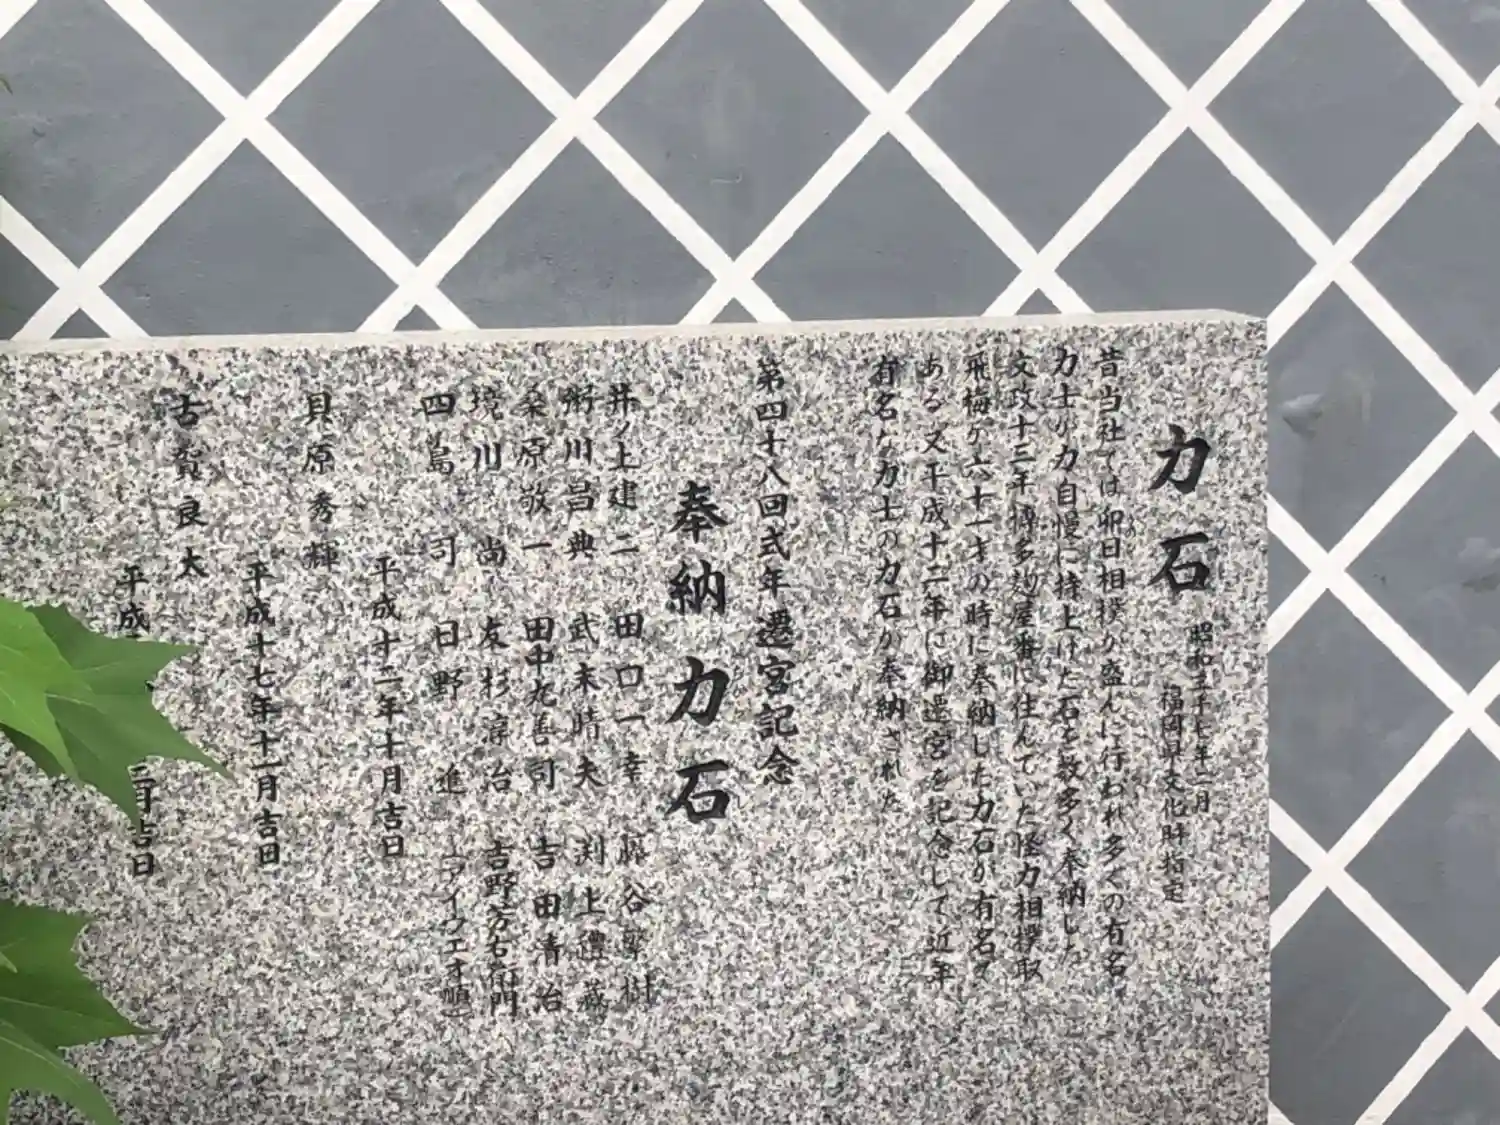 力石
昭和三十七年二月
福岡県文化財指定
昔当社では卯日相撲が盛んに行われ多くの有名
力士の力自慢に持上げた石を数多く奉納した
文政十三年博多麹屋番に住んでいた怪力相撲取
飛梅が六十一才の時に奉納した力石が有名で
ある 又平成十二年に御遷宮を記念して近年
有名な力士の力石が奉納された
第四十八回式年遷宮記念
奉納力石
井ノ上建二 田口一幸 藤谷繁樹
粥川昌典 武末晴夫 渕上禮蔵
桑原敬一 田中丸善司 吉田清治
境川尚 友杉淳治 吉野方右衛門
四島司 日野進 (アイウエオ順)
平成十二年十月吉日
貝原秀輝
平成十七年十一月吉日
古賀良太
平成 三月吉日